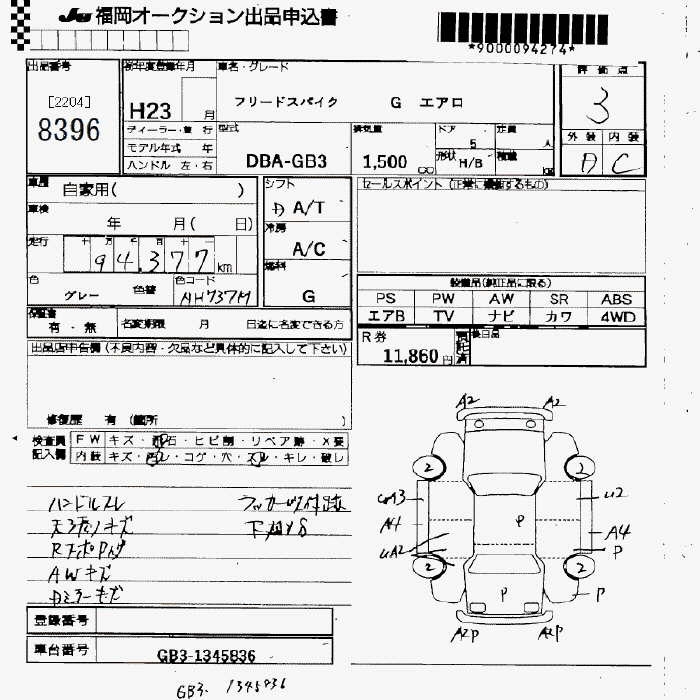 JU 福岡オークション出品申込書
*9000094274*
出品番号
[2204]
8396
初年度登録年月
H23 月
車名・グレード
フリードスパイク G エアロ
評価点
3
外装 内装
A C
ディーラー・並行
モデル年式 年
ハンドル 左・右
型式
DBA-GB3
排気量
1,500 cc
ドア
5
形状 H/B
定員 人
積載 kg
車歴 自家用( )
車検 年 月( 日)
走行 十 万 千 百 十 一
94,377 km
色 グレー 色替
色コード
NH737M
シフト
A/T
冷房
A/C
燃料
G
セールスポイント (正常に機能するもの)
装備品(純正品に限る)
PS PW AW SR ABS
エアB TV ナビ カワ 4WD
保証書
有・無
名変期限 月 日迄に名変できる方
R券
11,860円
預託済
後日品
出品店申告欄 (不良内容・欠品など具体的に記入して下さい)
修復歴 有 (箇所 )
検査員記入欄
FW キズ・飛石・ヒビ割・リペア跡・X要
内装 キズ・汚レ・コゲ・穴・スレ・キレ・破レ
ハンドルスレ
AWキズ
下回りS
A2 A2
2 2
A4
U2
A4
P
UA2
P
2 2
P
P
A2P
登録番号
車台番号
GB3-1345836
GB3- 1345836